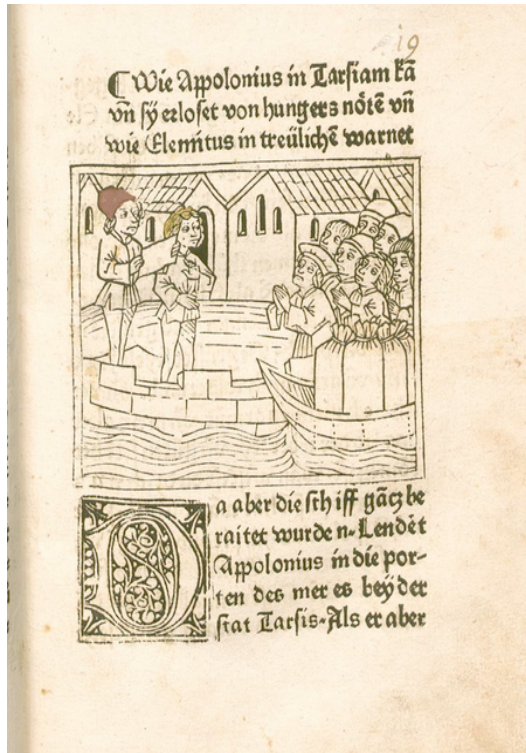 19
⸿ Wie Appolonius in Tarsiam kā
vn̄ sy erloset von hungers nötē vn̄
wie Elemitus in treülichē warnet
Da aber die sch iff gācz be
raitet wurde n⸗Lendēt
Appolonius in die por⸗
ten des mer es bey der
stat Tarsis⸗Als er aber